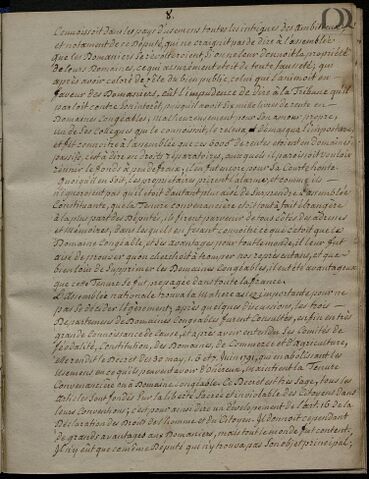 8.
Connoissoit dans les pays d'usemens toutes les intrigues des ambitieux
et notament de ce Député, qui ne craignit pas de dire à l'assemblée
que les Domaniers se révolteroient, si on ne leur donnoit la propriété
de leurs Domaines, ce qui assurément étoit de toute fausseté; qui
après avoir coloré de zèle du bien public, celui qui l'animoit en
faveur des Domaniers, eût l'impudence de dire à la Tribune qu'il
parloit contre son intérêt, puisqu'il avoit six mille livres de rente en
Domaines Congéables; malheureusement pour son amour propre,
un de ses Collegues qui le connoissoit, le releva, démasqua l'imposture,
et fit connoitre à l'assemblée que ces 6000# de rente etoient en Domaines
passifs, c'est à dire en droits réparatoires, auxquels il paroissoit vouloir
réunir le fond à peu de frais; il en fut encore pour sa Courte honte.
Quoiqu'il en soit, les propriétaires prirent l'alarme, et comme ils
n'ignoroient pas qu'il étoit d'autant plus aisé de surprendre l'assemblée
Constituante, que la Tenure convenancière étoit tout à fait étrangère
à la plus part des Députés, ils firent parvenir de tous côtés des adresses
et Mémoires, dans lesquels en faisant connoitre ce que c'étoit que le
Domaine Congéable, et ses avantages pour tout le monde, il leur fut
aisé de prouver qu'on cherchoit à tromper nos représentans, et que
bien loin de supprimer les Domaines Congéables, il eut été avantageux
que cette Tenure se fut répagée dans toute la france.
L'Assemblée nationale trouva la Matiere assez importante pour ne
pas se décider légèrement, après quelques discussions, les trois
Départemens de Domaines Congéables furent Consultés, enfin en très
grande Connoissance de Cause, et après avoir entendu ses Comités de
féodalité, Constitution, des Domaines, de Commerce et d'Agriculture,
elle rendit le Decret des 30 may, 1. 6 et 7 Juin 1791, qui en abolissant les
Usemens en ce qu'ils pouvoient avoir d'onéreux, maintient la Tenure
Convenancière ou à Domaine congéable. Ce Decret est très sage, tous les
articles sont fondés sur la liberté Sacrée et inviolable des Citoyens dans
leurs Conventions; c'est pour ainsi dire un développement de l'art. 16 de la
Déclaration des Droits de l'homme et du Citoyen. Il donnoit cependant
de grands avantages aux Domaniers, mais tout le monde fut content.
Il n'y eût que ce même Député qui n'y trouva pas son objet principal,